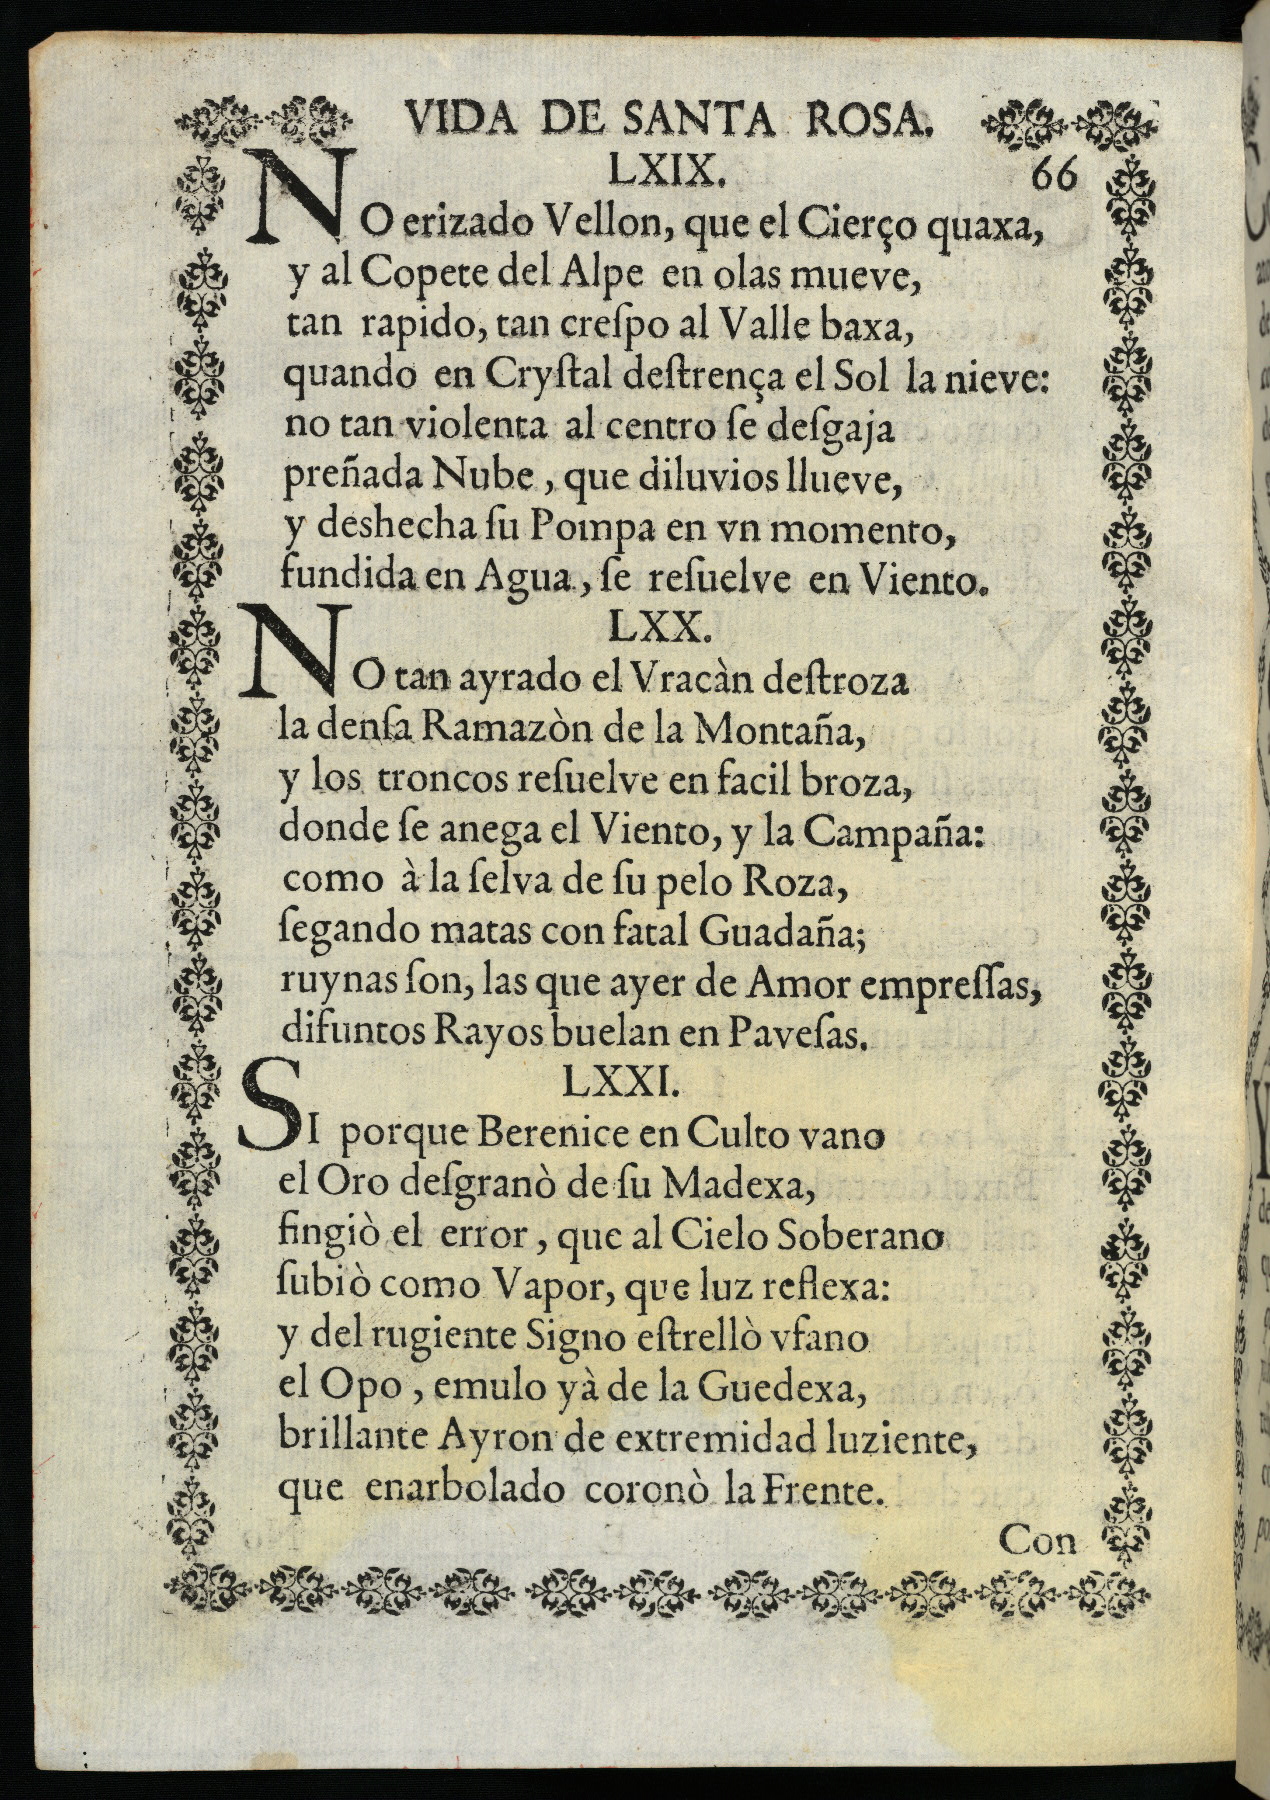 VIDA DE SANTA ROSA.
LXIX. 66
NO erizado Vellon, que el Cierço quaxa,
y al Copete del Alpe en olas mueve,
tan rapido, tan creſpo al Valle baxa,
quando en Cryſtal deſtrença el Sol la nieve:
no tan violenta al centro ſe deſgaja
preñada Nube, que diluvios llueve,
y deshecha ſu Pompa en vn momento,
fundida en Agua, ſe reſuelve en Viento.
LXX.
NO tan ayrado el Vracàn deſtroza
la denſa Ramazòn de la Montaña,
y los troncos reſuelve en facil broza,
donde ſe anega el Viento, y la Campaña:
como à la ſelva de ſu pelo Roza,
ſegando matas con fatal Guadaña;
ruynas ſon, las que ayer de Amor empreſſas,
difuntos Rayos buelan en Paveſas.
LXXI.
SI porque Berenice en Culto vano
el Oro deſgranò de ſu Madexa,
fingiò el error, que al Cielo Soberano
ſubiò como Vapor, que luz reflexa:
y del rugiente Signo eſtrellò vfano
el Opo, emulo yà de la Guedexa,
brillante Ayron de extremidad luziente,
que enarbolado coronò la Frente.
Con